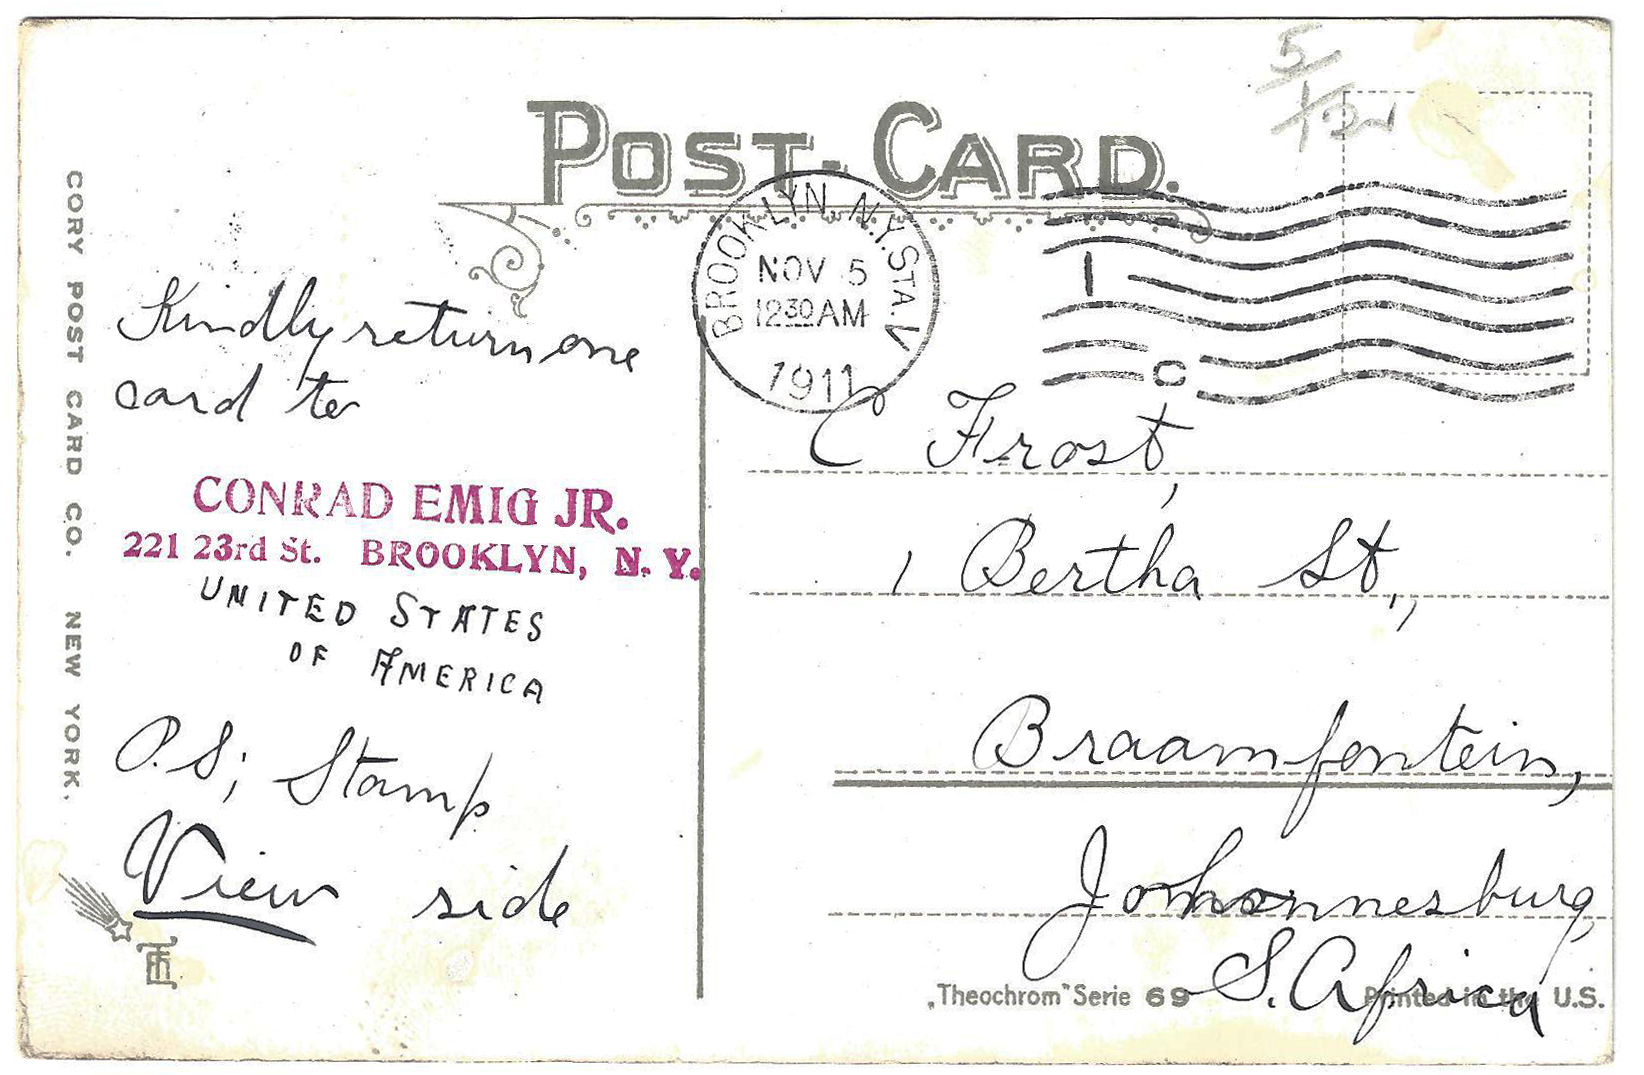 POST-CARD.
BROOKLYN, N.Y. STA. V
NOV 5
12 30 AM
1911
1 C
Kindly return one
card to
CONRAD EMIG JR.
221 23rd St. BROOKLYN, N. Y.
UNITED STATES
OF AMERICA
P.S; Stamp
View side
C Frost,
1 Bertha St.,
Braamfontein,
Johannesburg,
S. Africa
CORY POST CARD CO. NEW YORK.
„Theochrom" Serie 69
Printed in the U.S.